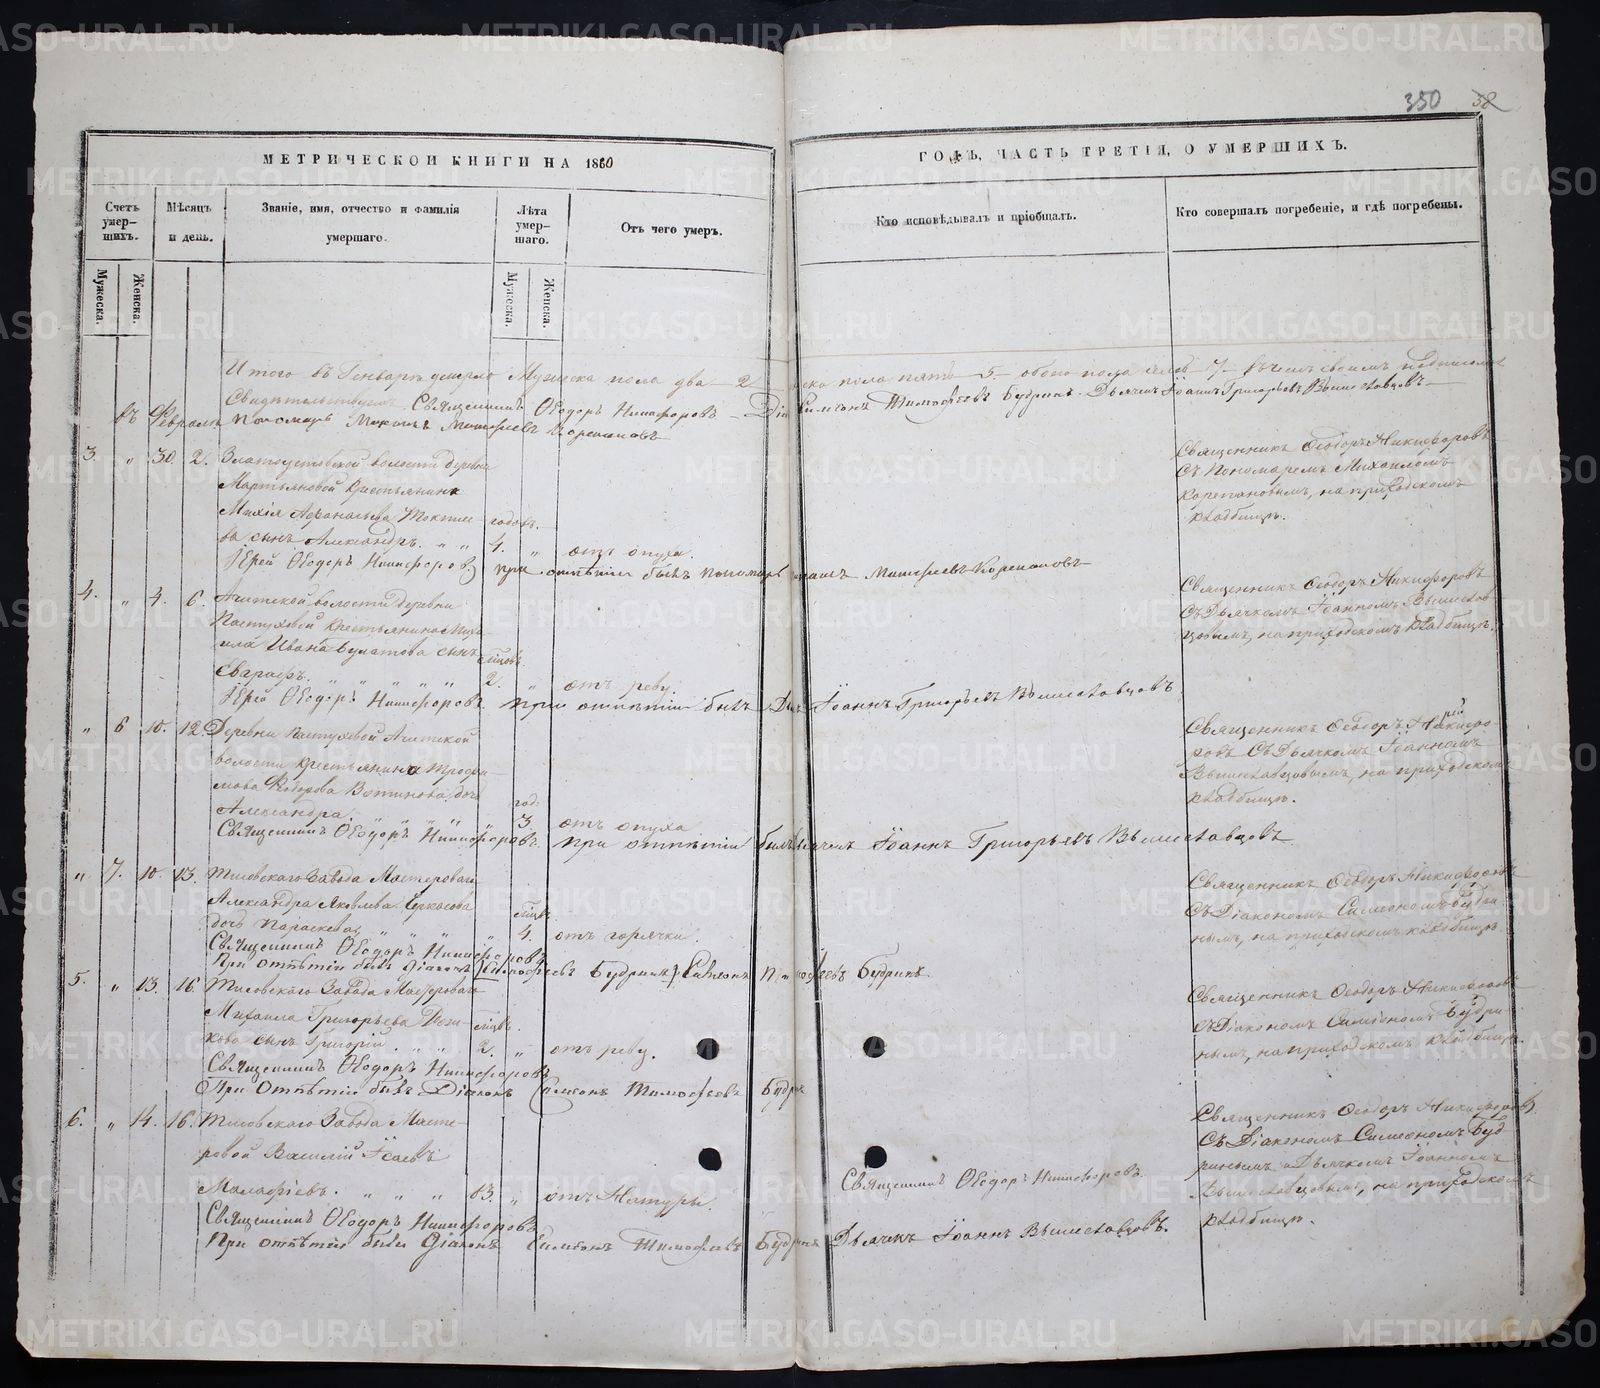 350 58
МЕТРИЧЕСКОЙ КНИГИ НА 1860
ГОДЪ, ЧАСТЬ ТРЕТІЯ, О УМЕРШИХЪ.
Счетъ умер-
шихъ.
Мужеска.
Женска.
Мѣсяцъ
и день.
Званіе, имя, отчество и фамилія
умершаго.
Лѣта
умер-
шаго.
Мужеска.
Женска.
Отъ чего умеръ.
Кто исповѣдывалъ и пріобщалъ.
Кто совершалъ погребеніе, и гдѣ погребены.
Итого въ Генварѣ умерло Мужеска пола два 2 женска пола пять 5 обоего пола 7
Свидѣтельствуемъ Священникъ Ѳеодоръ Никифоровъ Діаконъ Симеонъ Тимофеевъ Будринъ Дьячекъ Іоаннъ Григорьевъ Вышеславцовъ
въ Февралѣ Пономарь Михаилъ Матфеевъ Корепановъ
3. " 30. 2. Златоустовской волости деревни
Мартьяновой крестьянина
Афанасьева
годовъ.
ва сынъ Александръ. " " 4. " отъ опуха.
Священникъ Ѳеодоръ Никифоровъ
съ Пономаремъ Михаиломъ
Корепановымъ, на приходскомъ
кладбищѣ.
Іерей Ѳеодоръ Никифоровъ при отпѣтіи былъ пономарь Матфеевъ Корепановъ
4. " 4. 6. Ачитской волости деревни
Пастуховой крестьянина Миха-
ила Иванова Булатова сынъ
мѣсяцовъ
Евграфъ. " " " " " 2. " отъ реву.
Священникъ Ѳеодоръ Никифоровъ
съ Дьячкомъ Іоанномъ Вышеслав
цовымъ, на приходскомъ кладбищѣ.
Іерей Ѳеодоръ Никифоровъ при отпѣтіи былъ Іоаннъ Григорьевъ Вышеславцовъ
" 6 10. 12. Деревни Пастуховой Ачитской
волости крестьянина Трофи-
мова Федорова доч
год:
Александра. " " " " 3. отъ опуха
Священникъ Ѳеодоръ Никифо-
ровъ съ Дьячкомъ Іоанномъ
Вышеславцовымъ, на приходском
кладбищѣ.
Священникъ Ѳеодоръ Никифоровъ. при отпѣтіи былъ Дьячекъ Іоаннъ Григорьевъ Вышеславцовъ
" 7. 10. 13. Тисовскаго Завода Мастероваго
Александра Яковлева Черкасова
дочь Параскева " " " 4. отъ горячки.
Священникъ Ѳеодоръ Никифоровъ
съ Діакономъ Симеономъ Будри
нымъ, на приходскомъ кладбищѣ
Священникъ Ѳеодоръ Никифоровъ
При отпѣтіи былъ Діаконъ Тимофеевъ Будринъ Симеонъ Тимофеевъ Будринъ
5. " 13. 16. Тисовскаго Завода Мастероваго
Михаила Григорьева
сынъ Григорій. " " " 2. " отъ реву.
Священникъ Ѳеодоръ Никифоровъ
съ Діакономъ Симеономъ Будри
нымъ, на приходскомъ кладбищѣ.
Священникъ Ѳеодоръ Никифоровъ
При отпѣтіи былъ Діаконъ Симеонъ Тимофеевъ Будри
6. " 14. 16. Тисовскаго Завода Масте-
ровой Василій Исаевъ
Малафѣевъ. " " " 83. " отъ натуры.
Священникъ Ѳеодоръ Никифоровъ.
Священникъ Ѳеодоръ Никифоровъ
съ Діакономъ Симеономъ Буд
ринымъ и Дьячкомъ Іоанномъ
Вышеславцовымъ, на приходскомъ
кладбищѣ.
Священникъ Ѳеодоръ Никифоровъ
При отпѣтіи были Діаконъ Симеонъ Тимофеевъ Будринъ Дьячекъ Іоаннъ Вышеславцовъ.
METRIKI.GASO-URAL.RU